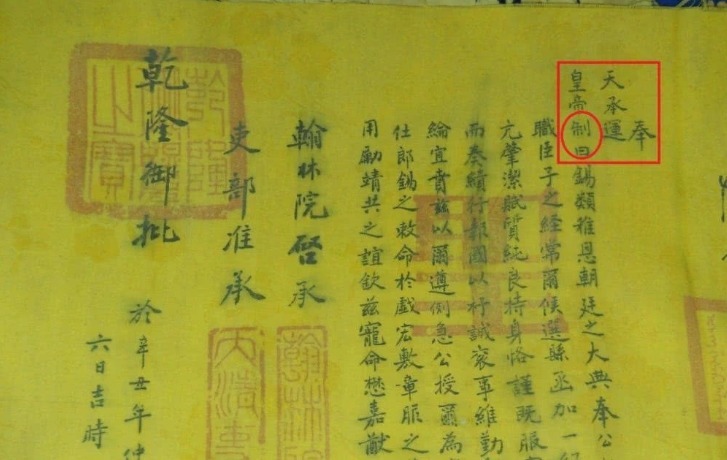 奉
天承運
皇帝制曰錫類稚恩朝廷之大典奉公
職臣子之經常爾候選縣丞加一
元肇潔紙質純良持身恪謹既服
而奏績行報國以杼誠褒寧維勤
綸宜賁兹以爾遵例急公授爾為
仕郎錫之敕命於戲宏敷章服之
用勵靖共之誼欽兹寵命懋嘉猷
翰林院啓承
翰林院
吏部准承
乾隆御批
於辛丑年仲
六日吉時